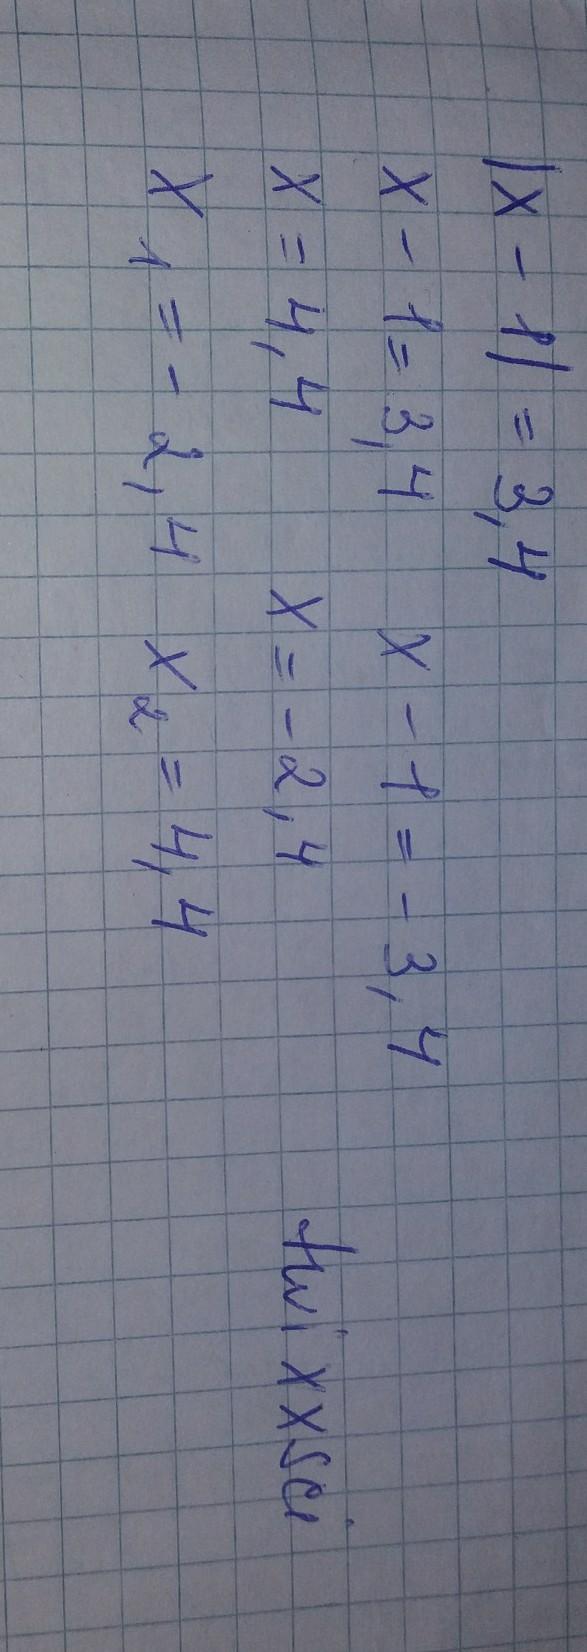 |x - 1| = 3,4
x - 1 = 3,4 x - 1 = -3,4
x = 4,4 x = -2,4
x1 = -2,4 x2 = 4,4